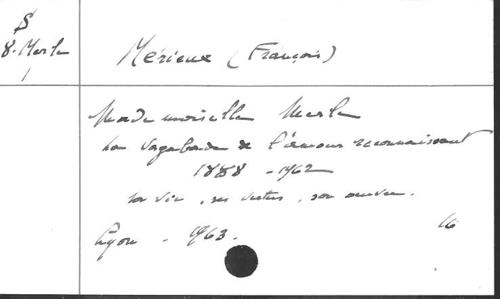 $
8. Merle
1
Mérieux (François)
Mademoiselle Merle
La vagabonde de l'amour reconnaissant
1888 - 1962
sa vie, ses vertus, son œuvre.
Lyon - 1963.
16